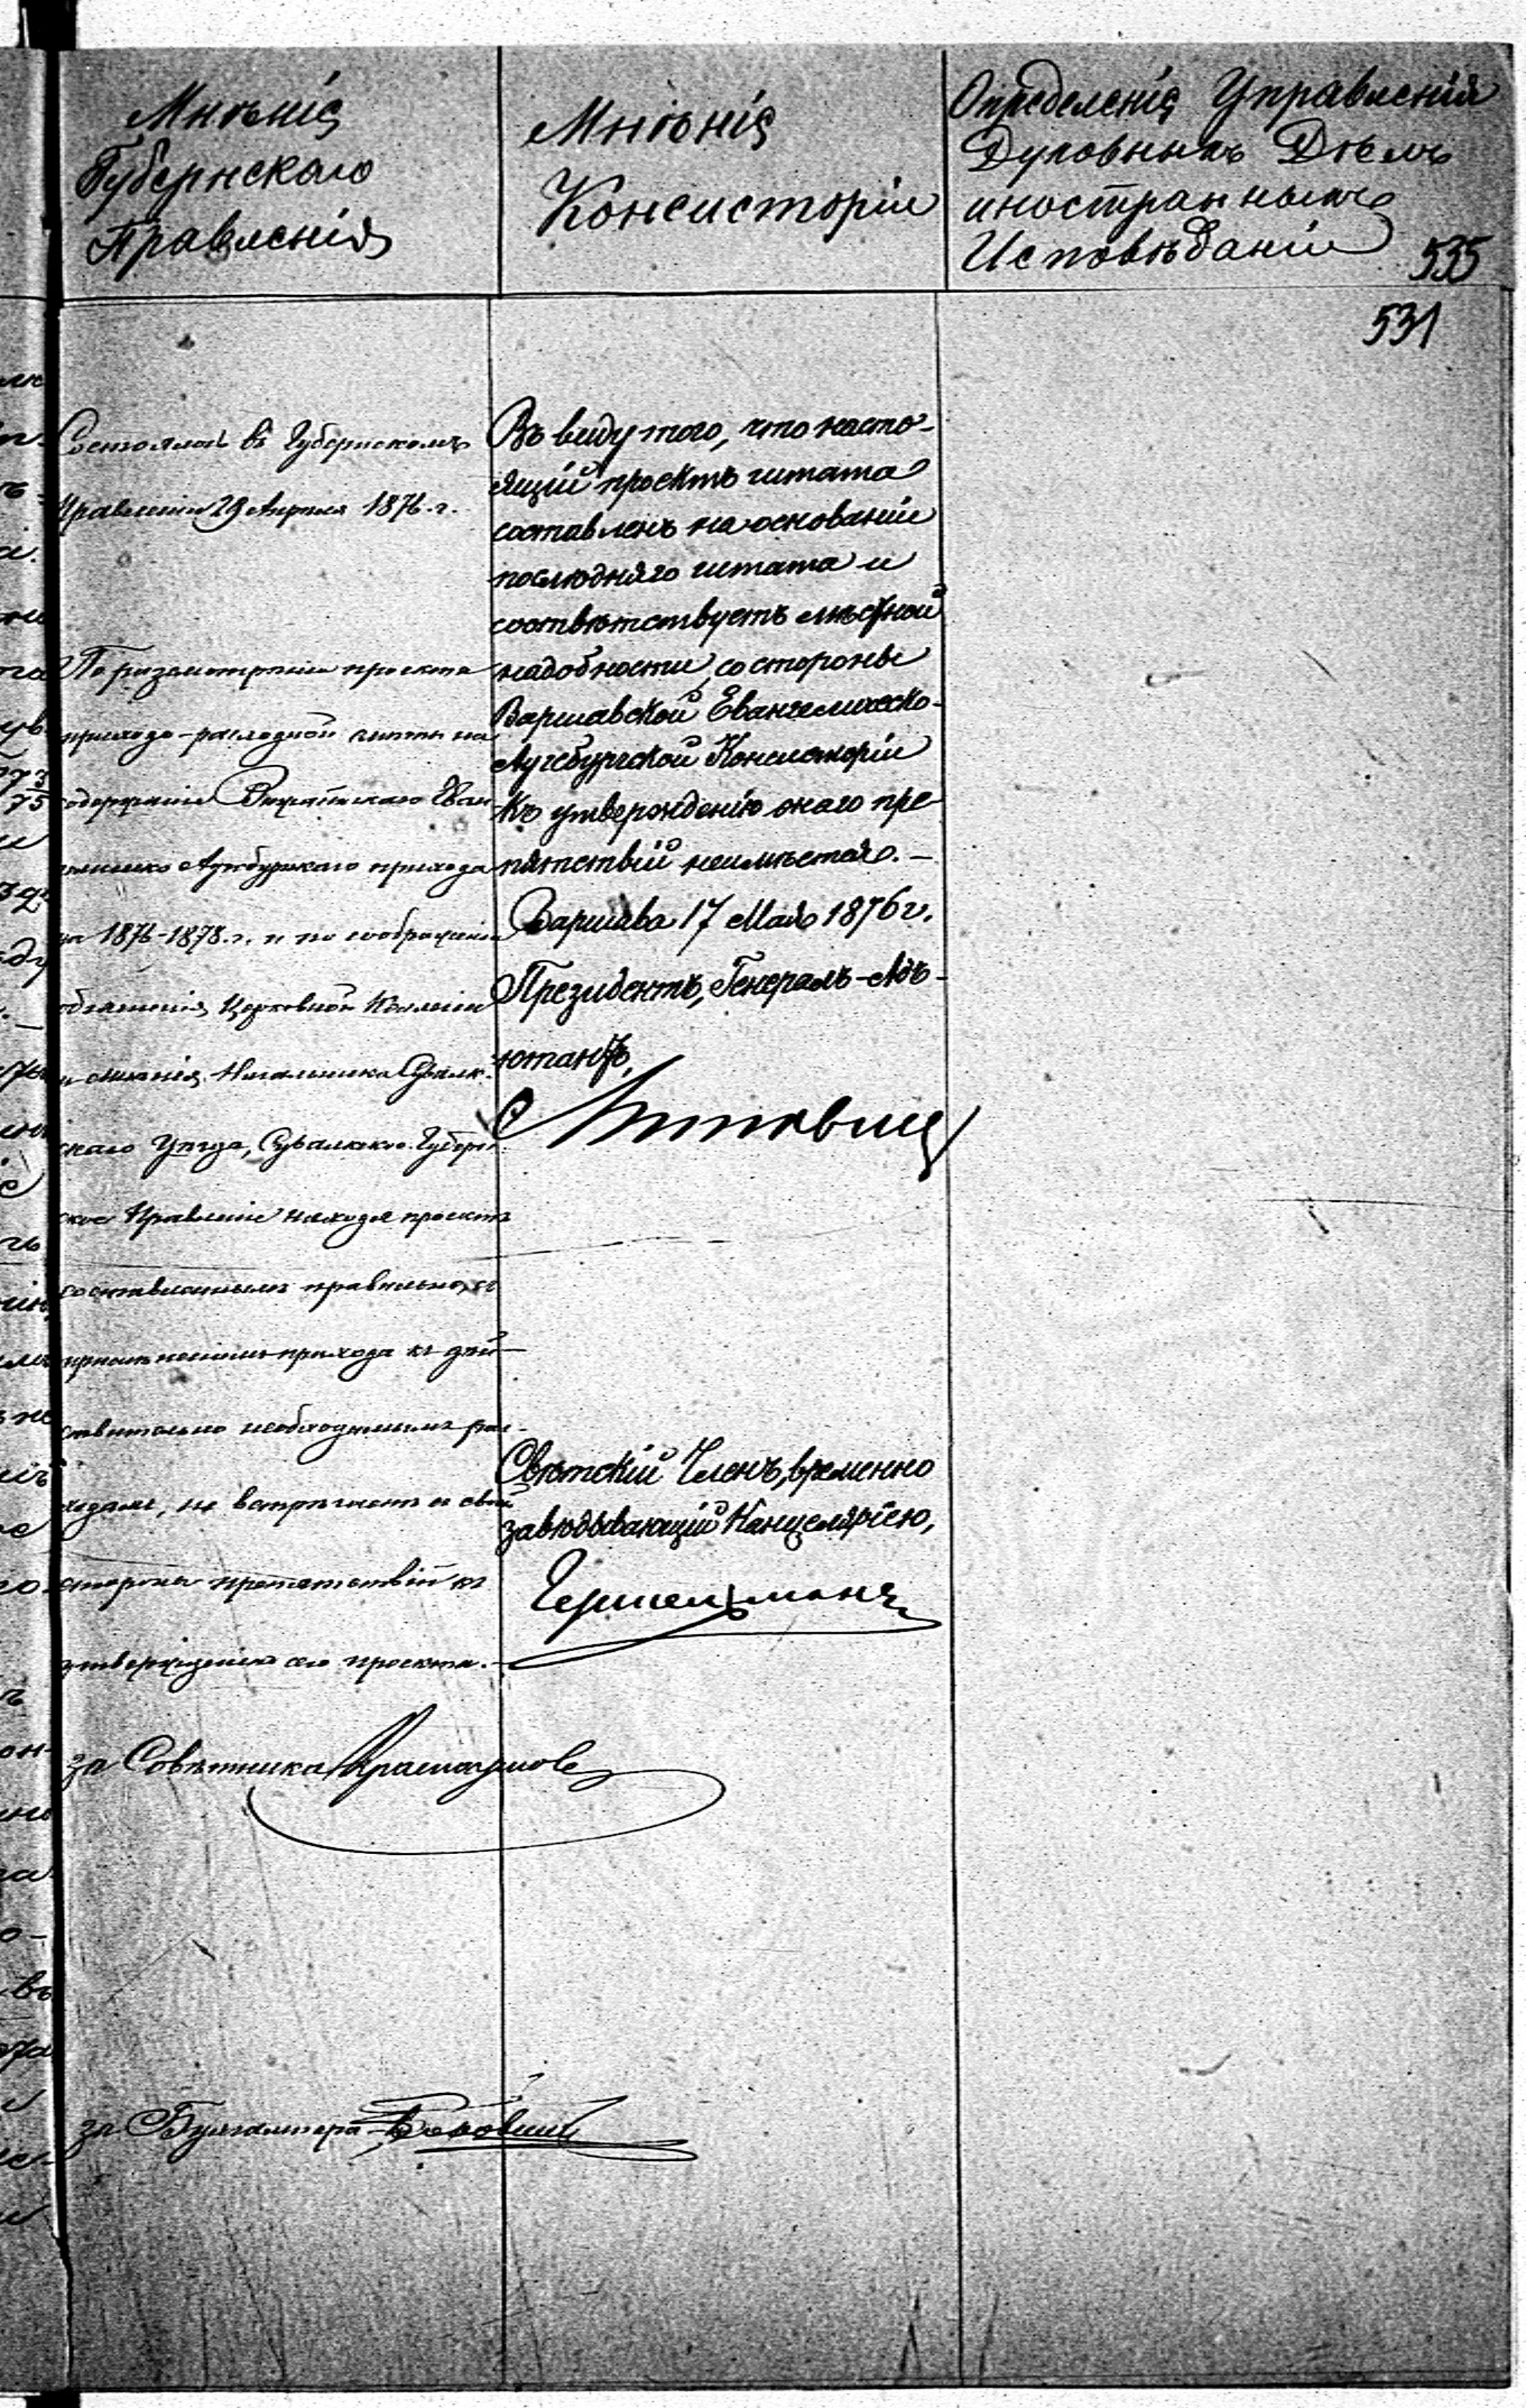 Мнѣнія
Губернскаго
Правленія
Мнѣнія
Консисторіи
Определенія Управленія
Духовныхъ Дѣлъ
иностранныхъ
Исповѣданій
535
531
Состоялось въ Губернскомъ
Правленіи 29 Апрѣля 1876 г.
По разсмотрѣніи проекта
приходо-расходной сметы на
содержаніе Еван
Аугсбургскаго прихода
на 1876-1878 г. и по соображеніи
объясненія Церковной Коллегіи
и мнѣнія Начальника Сувалк-
скаго Уѣзда, Сувалкское Губерн-
ское Правленіе находя проектъ
составленнымъ правильно, съ
примѣненіемъ прихода къ дѣй-
ствительно необходимымъ рас-
ходамъ, не встрѣчаетъ съ своей
стороны препятствій къ
утвержденію сего проекта.
за Совѣтника
за Бухгалтера
Въ виду того, что насто-
ящій проектъ штата
составленъ на основаніи
послѣдняго штата и
соотвѣтствуетъ мѣстной
надобности, со стороны
Варшавской Евангелическо-
Аугсбургской Консисторіи
къ утвержденію онаго пре-
пятствій неимѣется. —
Варшава 17 Мая 1876 г.
Президентъ, Генералъ-Адъ-
ютантъ,
Свѣтскій Членъ, временно
завѣдывающій Канцеляріею,
Гершельманъ